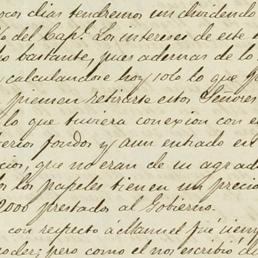 cos dias tendremos un dividendo
del Capl. Los intereses de este
bastante, pues ademas de lo
calculandose hoy solo lo que
piensan retirarse estos Señores
lo que tuviera conexion con e
fondos y aun entrado en
cios, que no eran de su agrad
los papeles tienen un precio
2000 prestados al Gobierno.
con respecto á Manuel fué siem
poder; pero como él nos escribió d